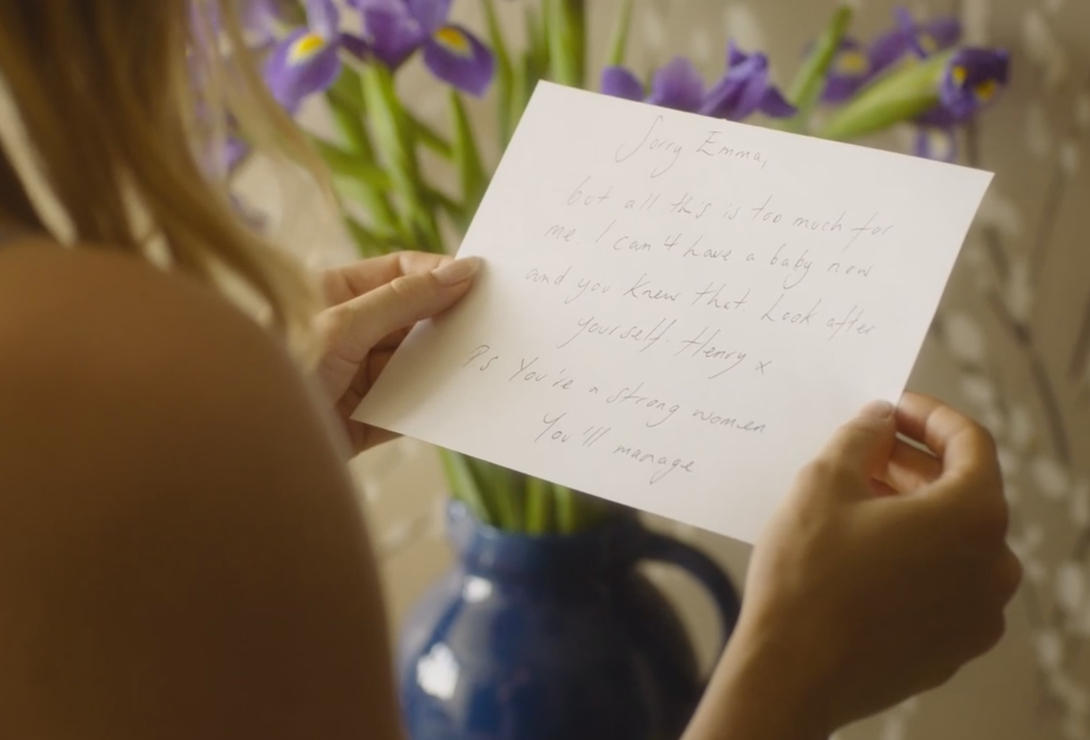 Sorry Emma,
but all this is too much for
me. I can't have a baby now
and you knew that. Look after
yourself. Henry x
Ps You're a strong women
You'll manage